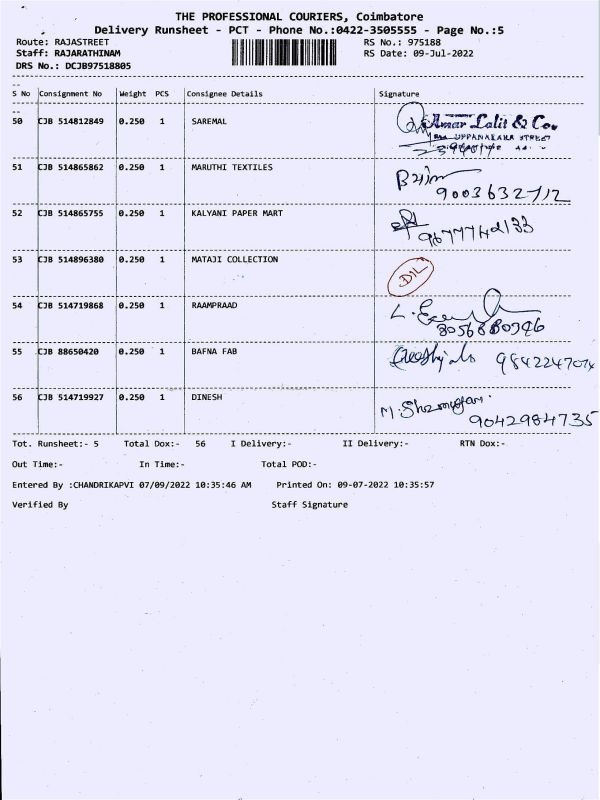 THE PROFESSIONAL COURIERS, Coimbatore
Delivery Runsheet - PCT - Phone No.:0422-3505555 - Page No.:5
Route: RAJASTREET RS No.: 975188
Staff: RAJARATHINAM RS Date: 09-Jul-2022
DRS No.: DCJB97518805
S No Consignment No Weight PCS Consignee Details Signature
50 CJB 514812849 0.250 1 SAREMAL Amar Lalit & Co.
UPPANAKARA STREET
51 CJB 514865862 0.250 1 MARUTHI TEXTILES
9003632712
52 CJB 514865755 0.250 1 KALYANI PAPER MART
9677742133
53 CJB 514896380 0.250 1 MATAJI COLLECTION D/L
54 CJB 514719868 0.250 1 RAAMPRAAD
8056880796
55 CJB 88650420 0.250 1 BAFNA FAB 9842247074
56 CJB 514719927 0.250 1 DINESH M. Shanmugam.
9042984735
Tot. Runsheet:- 5 Total Dox:- 56 I Delivery:- II Delivery:- RTN Dox:-
Out Time:- In Time:- Total POD:-
Entered By :CHANDRIKAPVI 07/09/2022 10:35:46 AM Printed On: 09-07-2022 10:35:57
Verified By Staff Signature